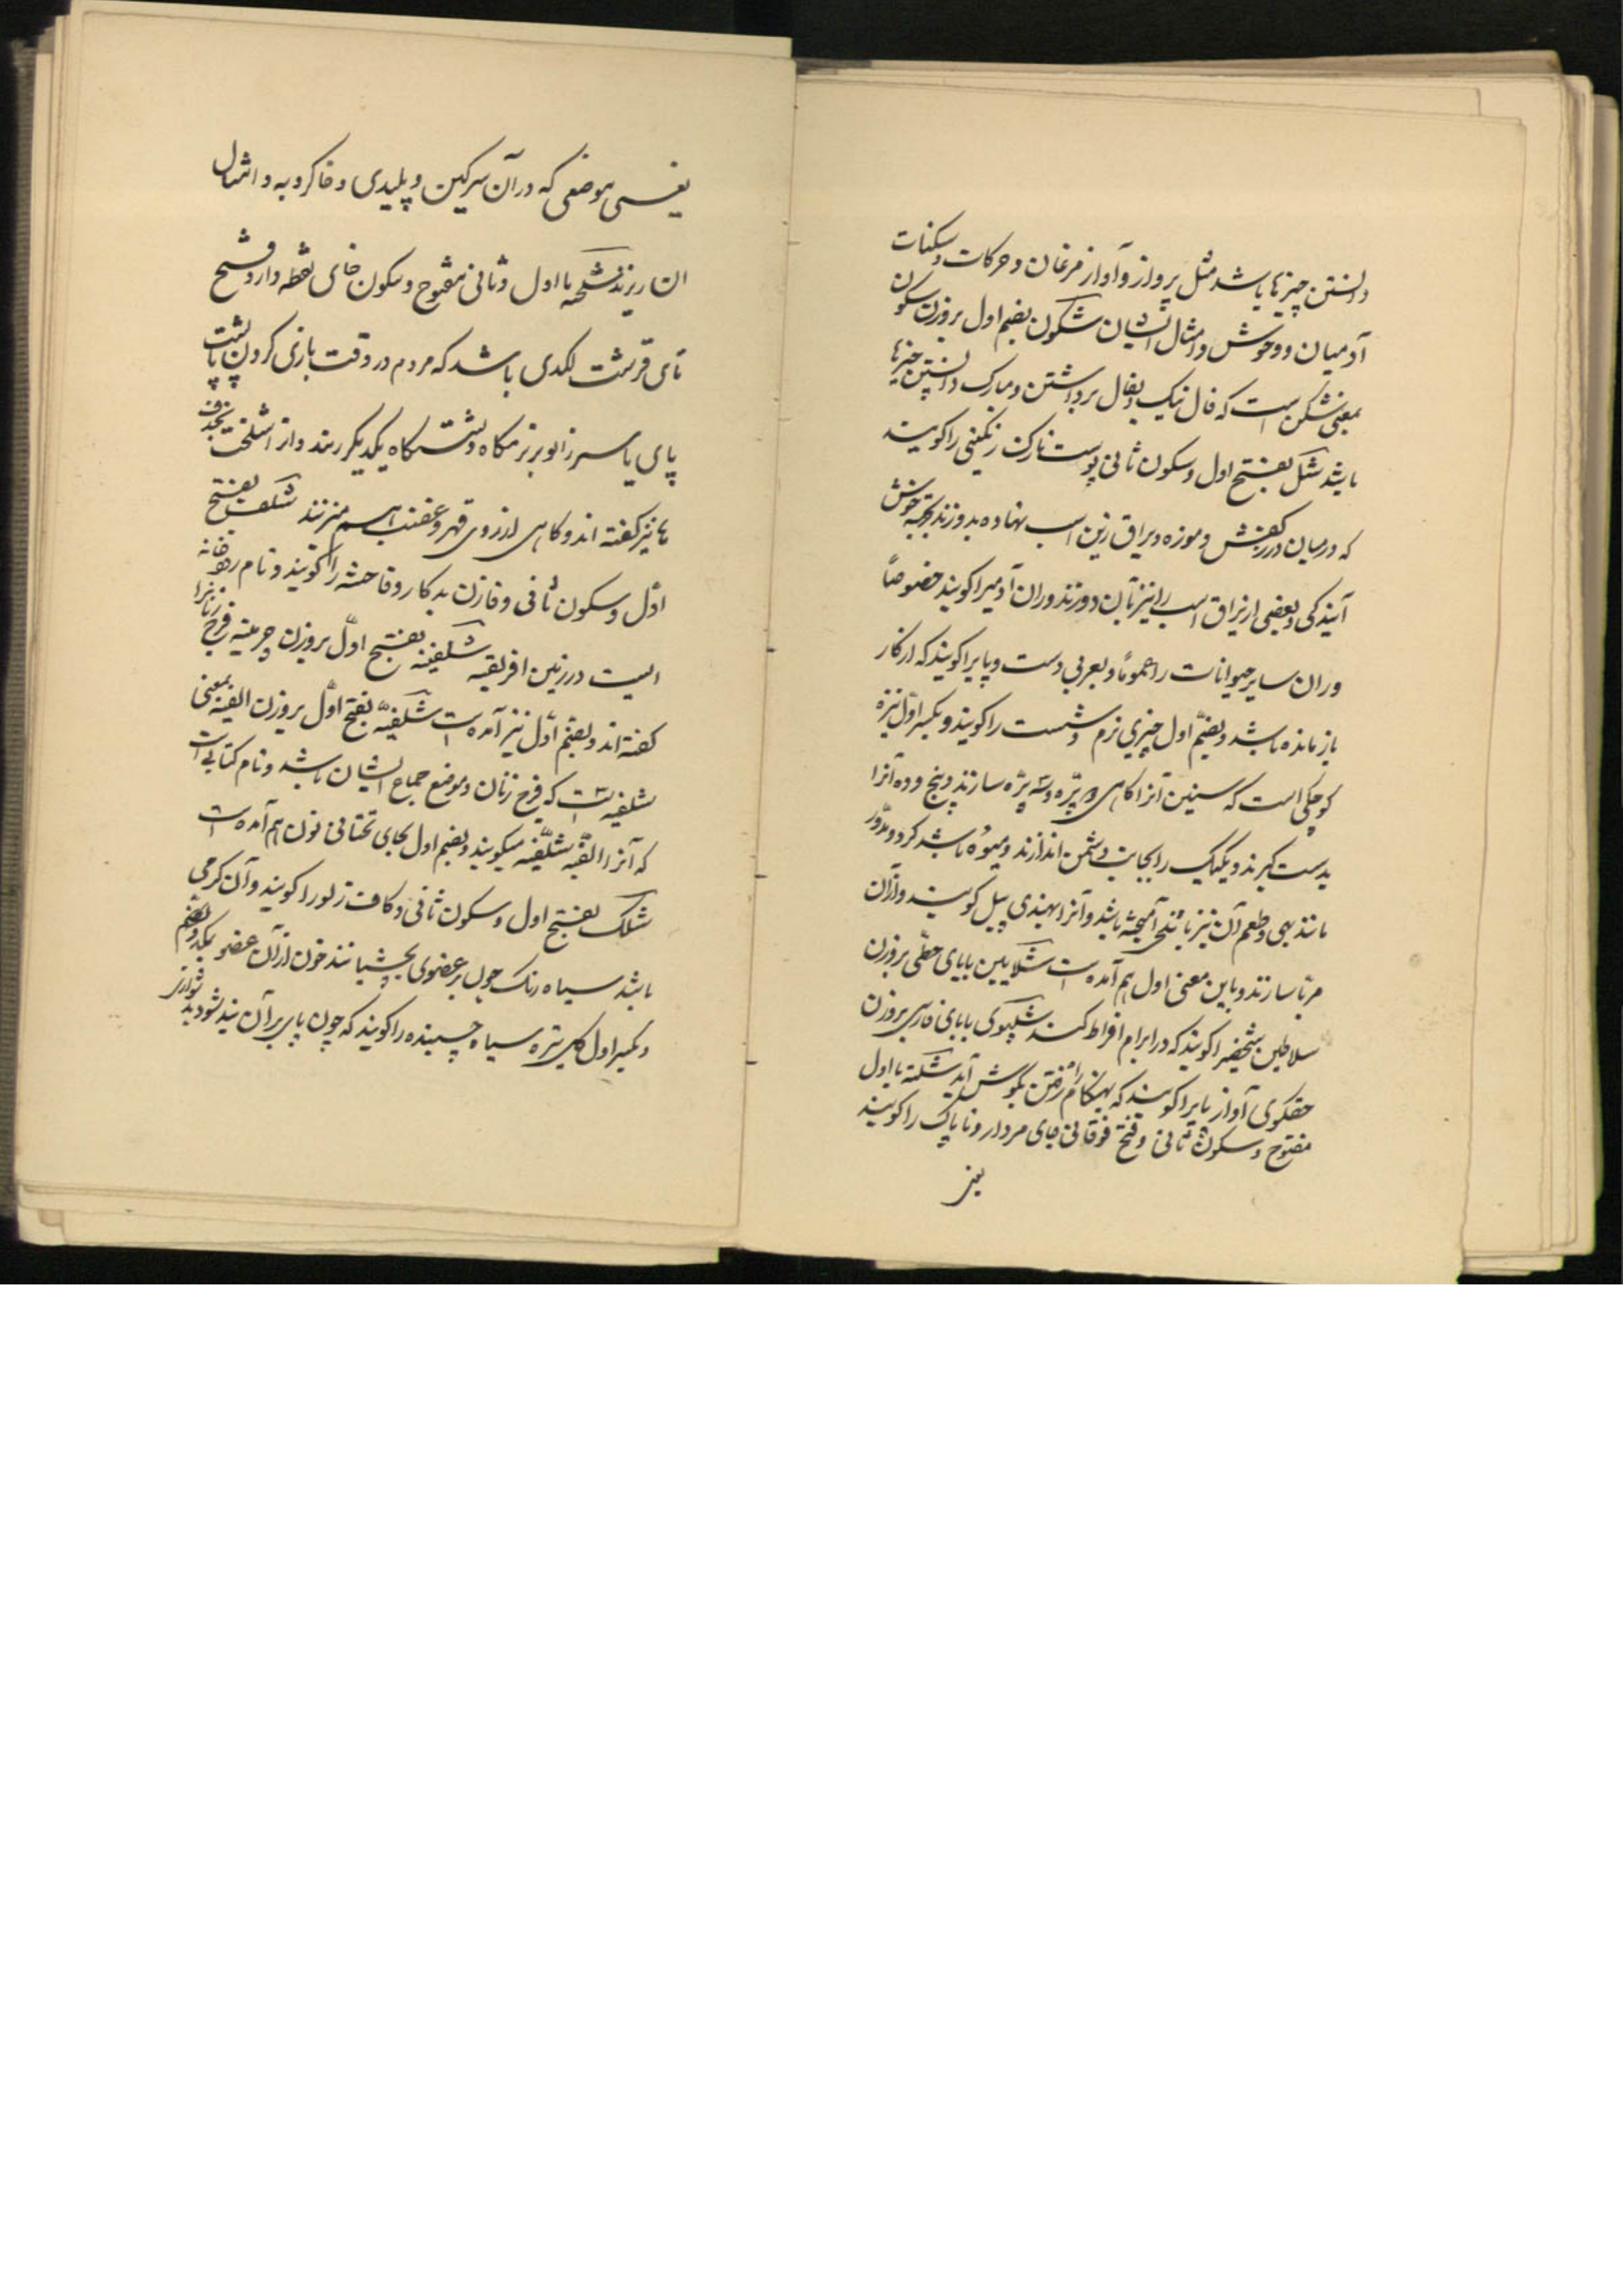 دانستن چیزها باشد مثل پرواز و آواز مرغان و حرکات و سکنات
آدمیان و وحوش و امثال ایشان شگون بضم اول بروزن سکون
بمعنی شگن است که فال نیک و بفال برداشتن و مبارک دانستن چیزها
باشد شکل بفتح اول و سکون ثانی پوست نازک رنگینی را کویند
که در میان درز کفش و موزه و یراق زین اسب نهاده بدوزند بجهة خوش
آیندکی و بعضی از یراق اسب را نیز بآن دوزند و ران آدمیرا کویند خصوصاً
و ران سایر حیوانات را عموماً و بعربی دست و پایرا کویند که از کار
باز مانده باشد و بضم اول چیزی نرم و سست را کویند و بکسر اول نیزه
کوچکی است که سنین آنرا کاهی دو پرّه و سه پرّه سازند و پنج و ده آنرا
بدست کیرند و یک‌یک را بجانب دشمن اندازند و میوهٔ باشد کرد و مدوّر
مانند بهی و طعم آن نیز باتلخی آمیخته باشد و آنرا بهندی بیل کویند و از آن
مربّا سازند و باین معنی اول هم آمده است شلایین بایای حطّی بروزن
سلاطین شخصیرا کویند که در ابرام افراط کند شلپوی بابای فارسی بروزن
حقکوی آواز پایرا کویند که بهنکام راه رفتن بگوش آید شلته با اول
مفتوح و سکون ثانی و فتح فوقانی جای مردار و ناپاک را کویند
یعنی
یعنی موضعی که در آن سرکین و پلیدی و خاکروبه و امثال
ان ریزند شلخته با اول و ثانی مفتوح و سکون خای نقطه دار و فتح
تای قرشت لکدی باشد که مردم در وقت بازی کردن پشت پا
پای یا سر زانو بر نرمکاه و نشستگاه یکدیکر زنند و از اشلخت بحذف
ها نیز کفته اند و کاهی از روی قهر و غضب هم میزنند شلف بفتح
اوّل و سکون ثانی و فا زن بدکار و فاحشه را کویند و نام رودخانه
ایست در زمین افریقیه شلفینه بفتح اوّل بروزن چرمینه فرج زنانرا
کفته اند و بضم اوّل نیز آمده است شلفیّه بفتح اوّل بروزن الفیه بمعنی
شلفینه است که فرج زنان و موضع جماع ایشان باشد و نام کتابی است
که آنرا الفیّه شلفّیه میکویند و بضم اول بجای تحتانی نون هم آمده است
شلک بفتح اول و سکون ثانی و کاف زلو را کویند و آن کرمی
باشد سیاه رنک چون بر عضوی بچسبانند خون از آن عضو بمکد و بضم
و بکسر اول کل تیره سیاه چسبنده را کویند که چون پای بر آن بند شود بدشواری